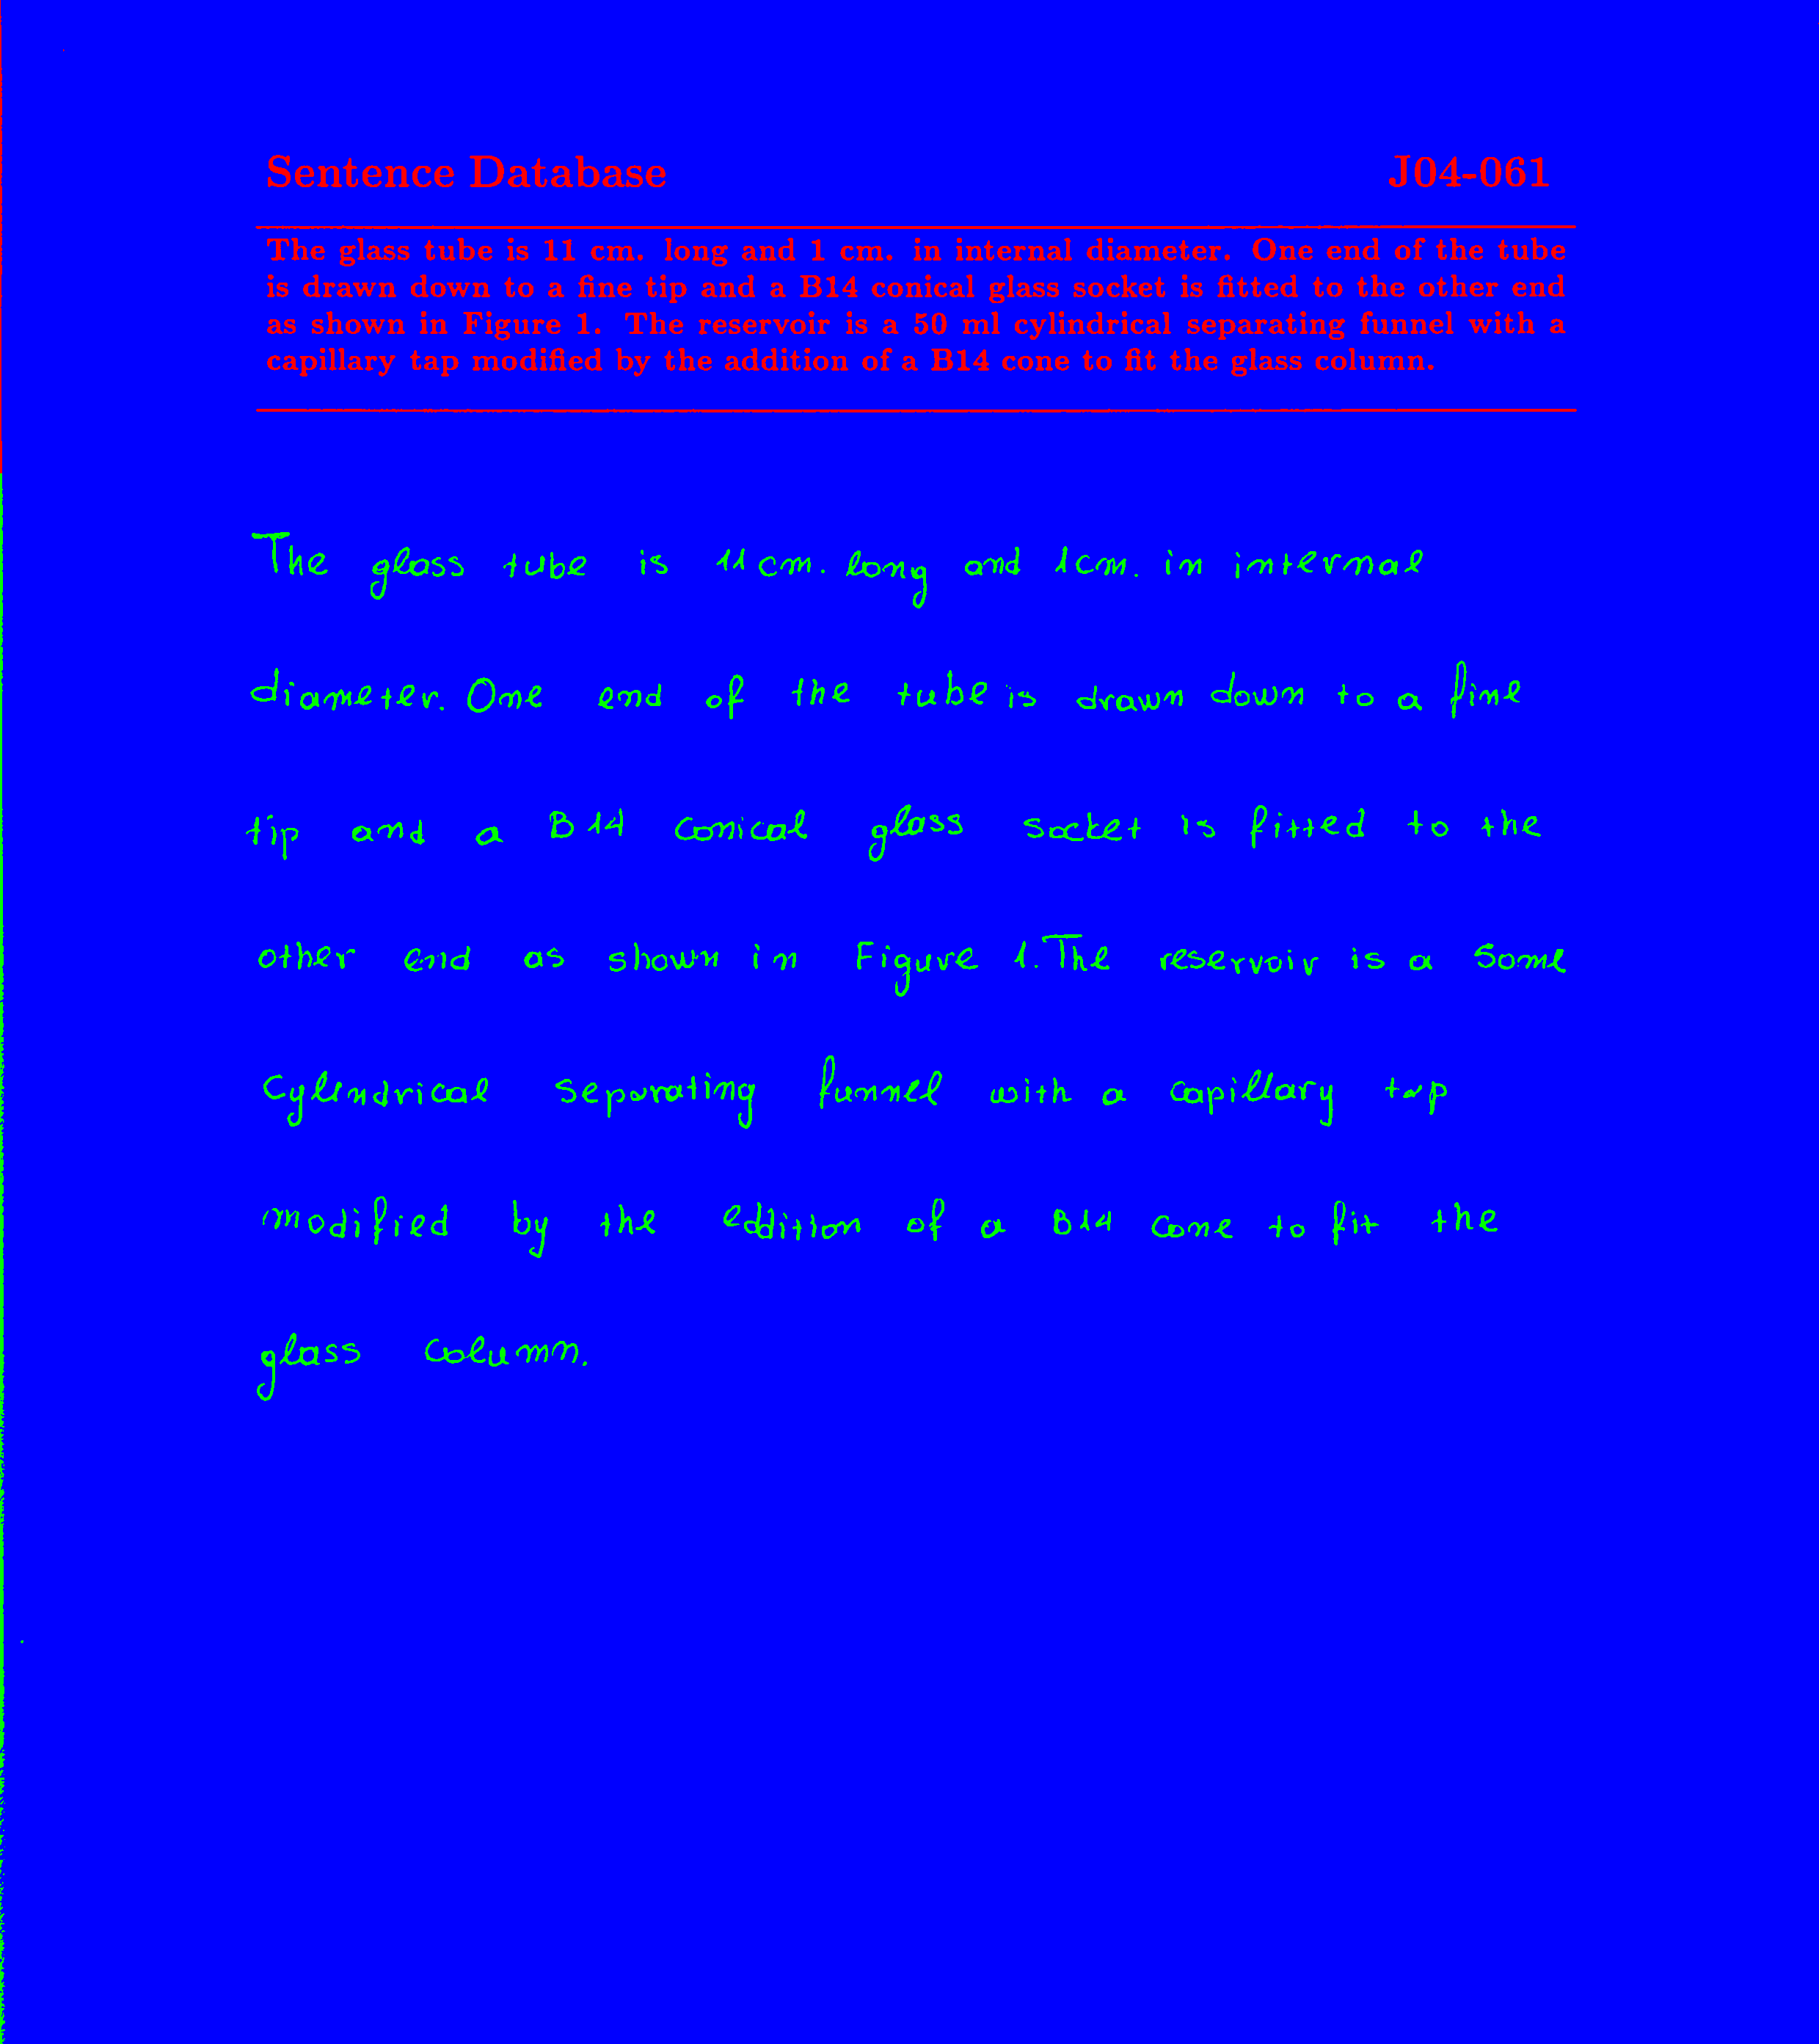 Sentence Database J04-061
The glass tube is 11 cm. long and 1 cm. in internal diameter. One end of the tube
is drawn down to a fine tip and a B14 conical glass socket is fitted to the other end
as shown in Figure 1. The reservoir is a 50 ml cylindrical separating funnel with a
capillary tap modified by the addition of a B14 cone to fit the glass column.
The glass tube is 11cm. long and 1cm. in internal
diameter. One end of the tube is drawn down to a fine
tip and a B14 conical glass socket is fitted to the
other end as shown in Figure 1. The reservoir is a some
cylindrical separating funnel with a capillary tap
modified by the eddition of a B14 cone to fit the
glass column.